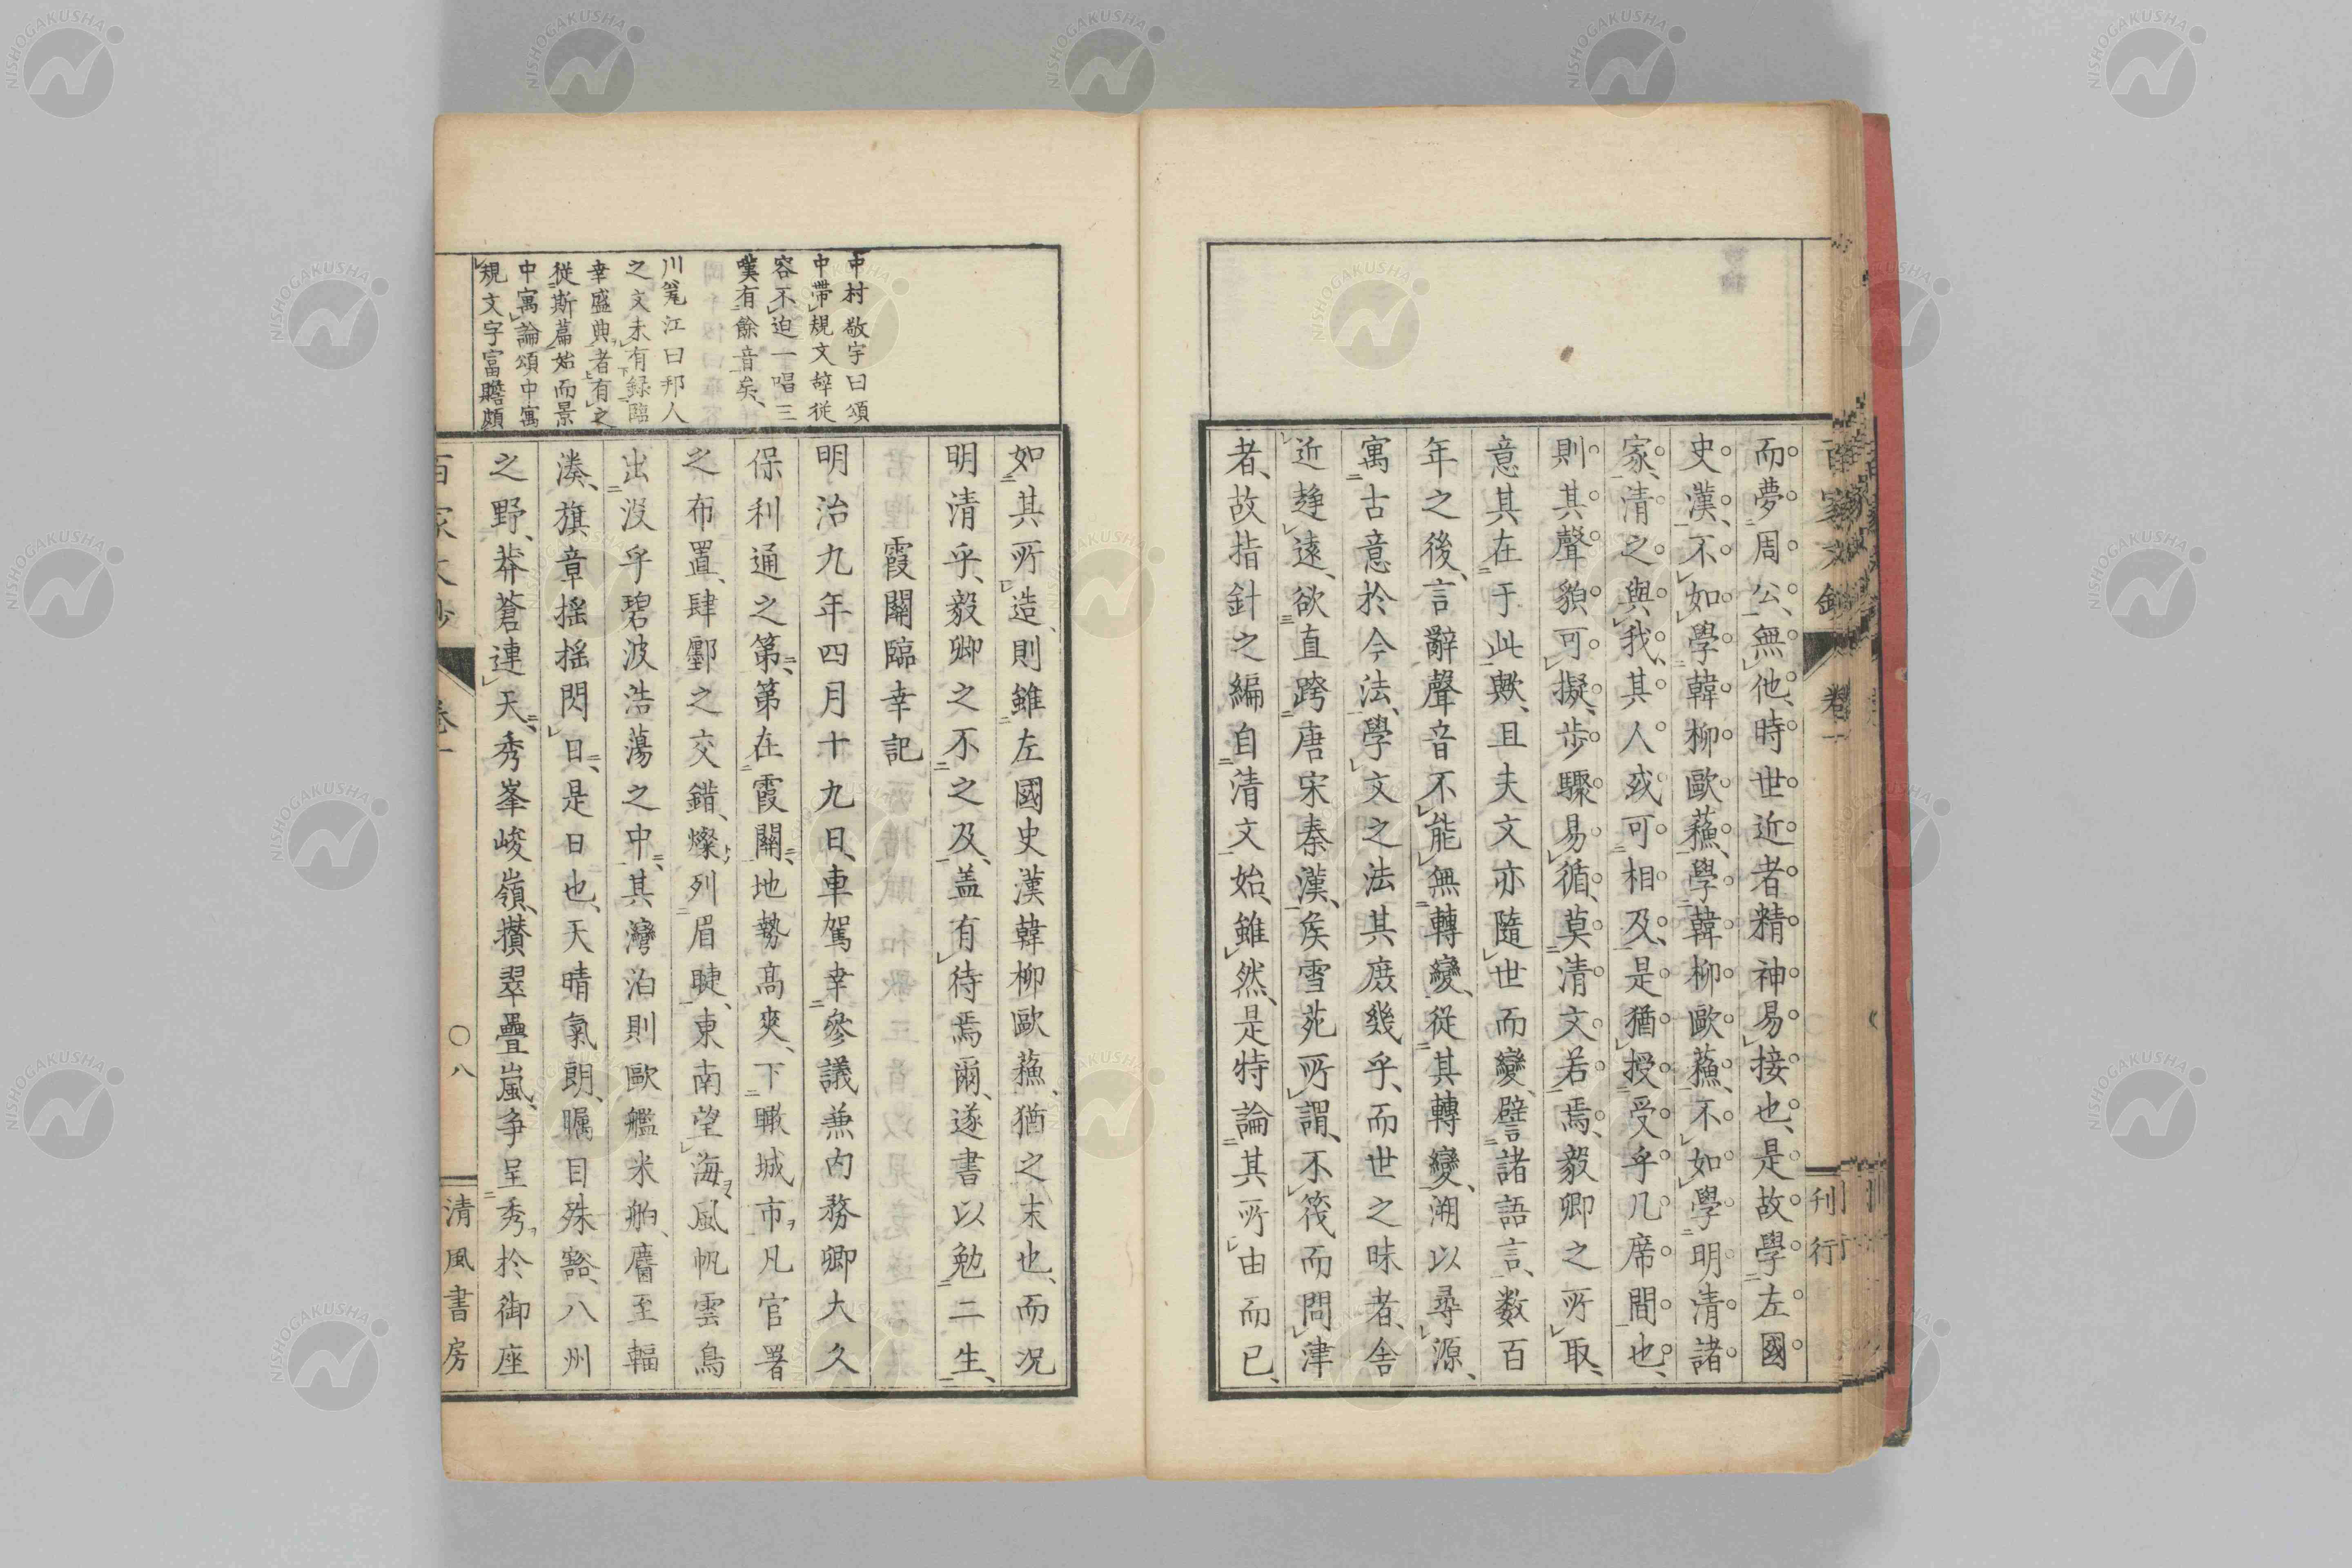 而夢周公、無他、時世近者精神易接也、是故學左國
史漢、不如學韓柳歐蘓、學韓柳歐蘓、不如學明清諸
家、清之與我、其人或可相及、是猶授受乎几席間也、
則其聲貌可擬、步驟易循、莫清文若焉、毅卿之所取、
意其在于此歟、且夫文亦隨世而變、譬諸語言、数百
年之後、言辭聲音不能無轉變、從其轉變、溯以尋源、
寓古意於今法、學文之法其庶幾乎、而世之昧者、舍
近趍遠、欲直跨唐宋秦漢、矦雪苑所謂、不筏而問津
者、故指針之編自清文始、雖然、是特論其所由而已、
如其所造、則雖左國史漢韓柳歐蘓、猶之末也、而况
明清乎、毅卿之不之及、盖有待焉爾、遂書以勉二生、
霞關臨幸記
明治九年四月十九日、車駕幸參議兼内務卿大久
保利通之第、第在霞關、地勢高爽、下瞰城市、凡官署
之布置、肆鄽之交錯、燦列眉睫、東南望海、風帆雲鳥
出沒乎碧波浩蕩之中、其灣泊則歐艦米舶、麕至輻
湊、旗章揺揺閃日、是日也、天晴氣朗、矚目殊豁、八州
之野、莽蒼連天、秀峯峻嶺、攅翠疊嵐、争呈秀於御座
中村敬宇曰頌
中帶規文辭從
容不迫一唱三
嘆有餘音矣、
川筼江曰邦人
之文未有録臨
幸盛典者有之
從斯篇始而景
中寓論頌中寓
規文字富贍頗
百家文鈔
卷一
刊行
〇八
清風書房
NISHOGAKUSHA